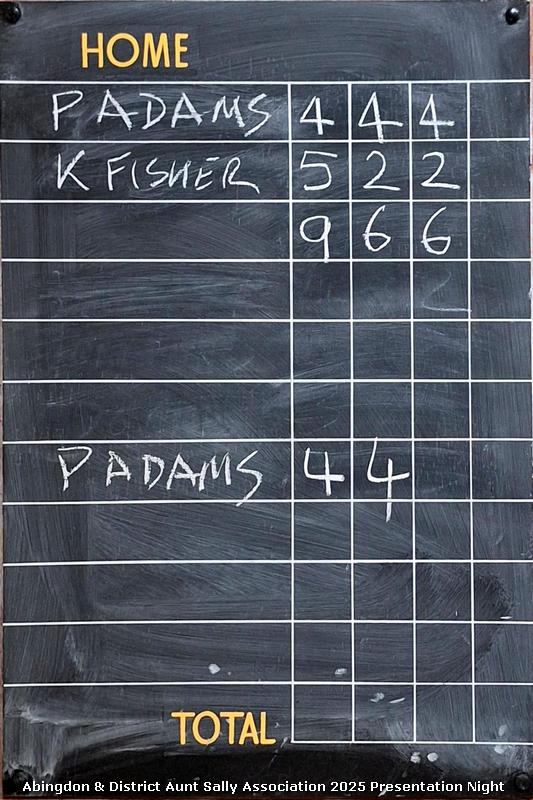 HOME
P ADAMS 4 4 4
K FISHER 5 2 2
9 6 6
P ADAMS 4 4
TOTAL
Abingdon & District Aunt Sally Association 2025 Presentation Night